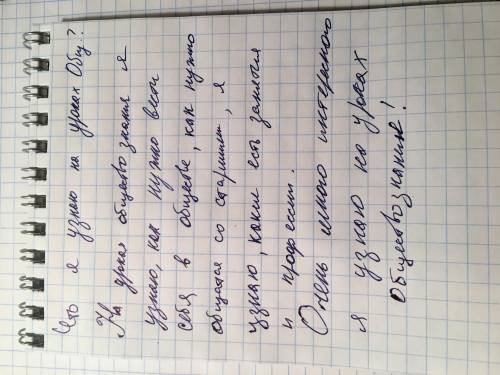 Что я узнаю на уроках Общ.?
На уроках обществознания я
узнаю, как нужно вести
себя в обществе, как нужно
общатся со старшими, я
узнаю, какие есть занятия
и професии.
Очень много интересного
я узнаю на уроках
Обществознание!